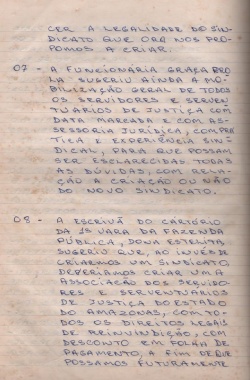 CER A LEGALIDADE DO SIN-
DICATO QUE ORA NOS PRO-
POMOS A CRIAR.
07 - A FUNCIONÁRIA GRAÇA PRO
LA SUGERIU AINDA A MO-
BILIZAÇÃO GERAL DE TODOS
OS SERVIDORES E SERVEN-
TUÁRIOS DE JUSTIÇA COM
DATA MARCADA E COM AS-
SESSORIA JURÍDICA, COM PRÁ
TICA E EXPERIÊNCIA SIN-
DICAL, PARA QUE POSSAM
SER ESCLARECIDAS TODAS
AS DÚVIDAS, COM RELA-
ÇÃO A CRIAÇÃO OU NÃO
DO NOVO SINDICATO.
08 - A ESCRIVÃ DO CARTÓRIO
DA 1ª VARA DA FAZENDA
PÚBLICA, DONA ESTELITA
SUGERIU QUE, AO INVÉS DE
CRIARMOS UM SINDICATO,
DEVERÍAMOS CRIAR UMA
ASSOCIAÇÃO DOS SERVIDO-
RES E SERVENTUÁRIOS
DE JUSTIÇA DO ESTADO
DO AMAZONAS, COM TO-
DOS OS DIREITOS LEGAIS
DE REIVINDIÇÃO, COM
DESCONTO EM FOLHA DE
PAGAMENTO, A FIM DE QUE
POSSAMOS FUTURAMENTE